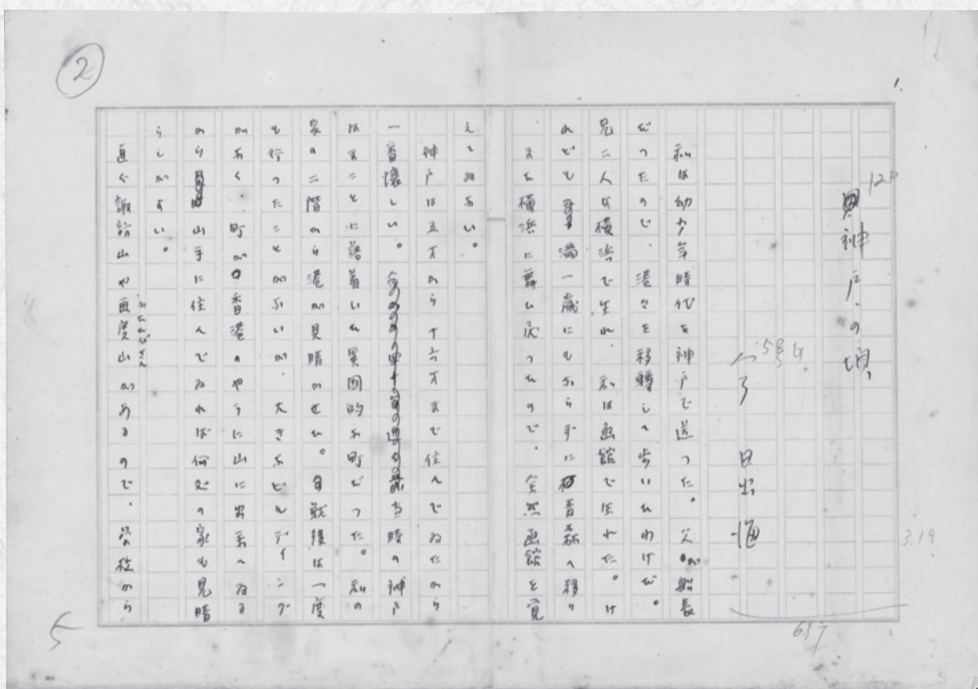 ②
12P
神戸の頃
今日出海
5号G
3.19
私は幼少年時代を神戸で送つた。父が船長
だつたので、港々を移轉して歩いたわけだ。
兄二人は横浜で生れ、私は函館で生れた。け
れども満一歳にもならずに青森へ移り
また横浜に舞ひ戻つたので、全然函館を覚
えてゐない。
神戸は五才から十六才まで住んでゐたから
一番懐しい。当時の神戸
はまことに落着いた異国的な町だつた。私の
家の二階から港が見晴かせた。戦後は一度
も行つたことがないが、大きなビルディング
がなく、町が香港のやうに山に出来てゐる
から山手に住んでゐれば何処の家も見晴
らしがよい。
直ぐ諏訪山や再度山があるので、学校から
ふたたびさん
697
5